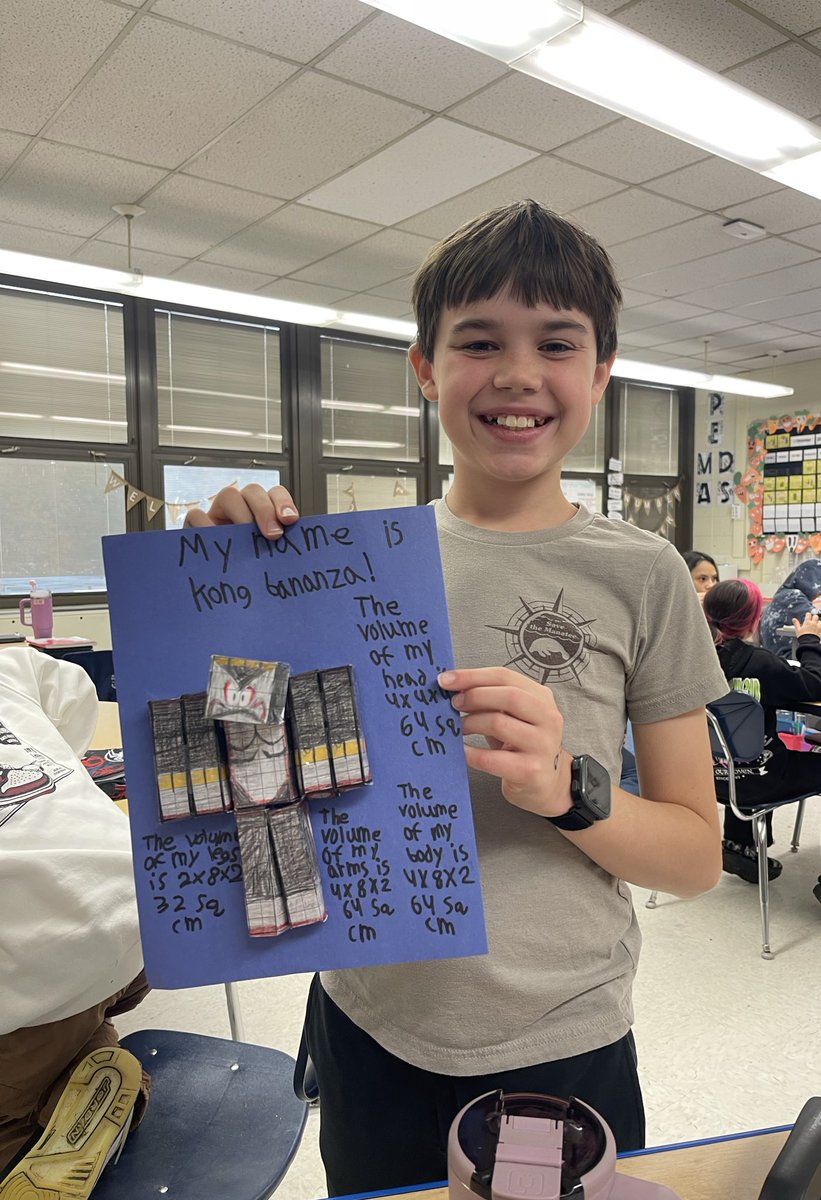 My name is
Kong bananza!
The
volume
of my
head is
4x4x4
64 sq
cm
The volume
of my legs
is 2x8x2
32 sq
cm
The
volume
of my
arms is
4x8x2
64 sq
cm
The
volume
of my
body is
4x8x2
64 sq
cm
Save
the Manatee
PE
MD
AS
WEL